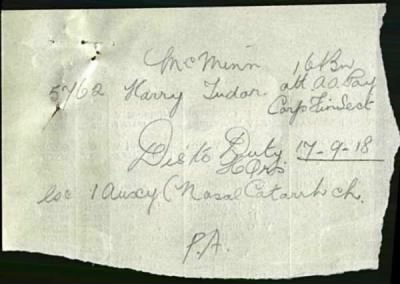 McMinn 16 Bn
5762 Harry Tudor att A A Pay
Corp Fin Sect
Dis to Duty 17-9-18
HQrs
Loc 1 Auxy (Nasal Catarrh ch.
P.A.